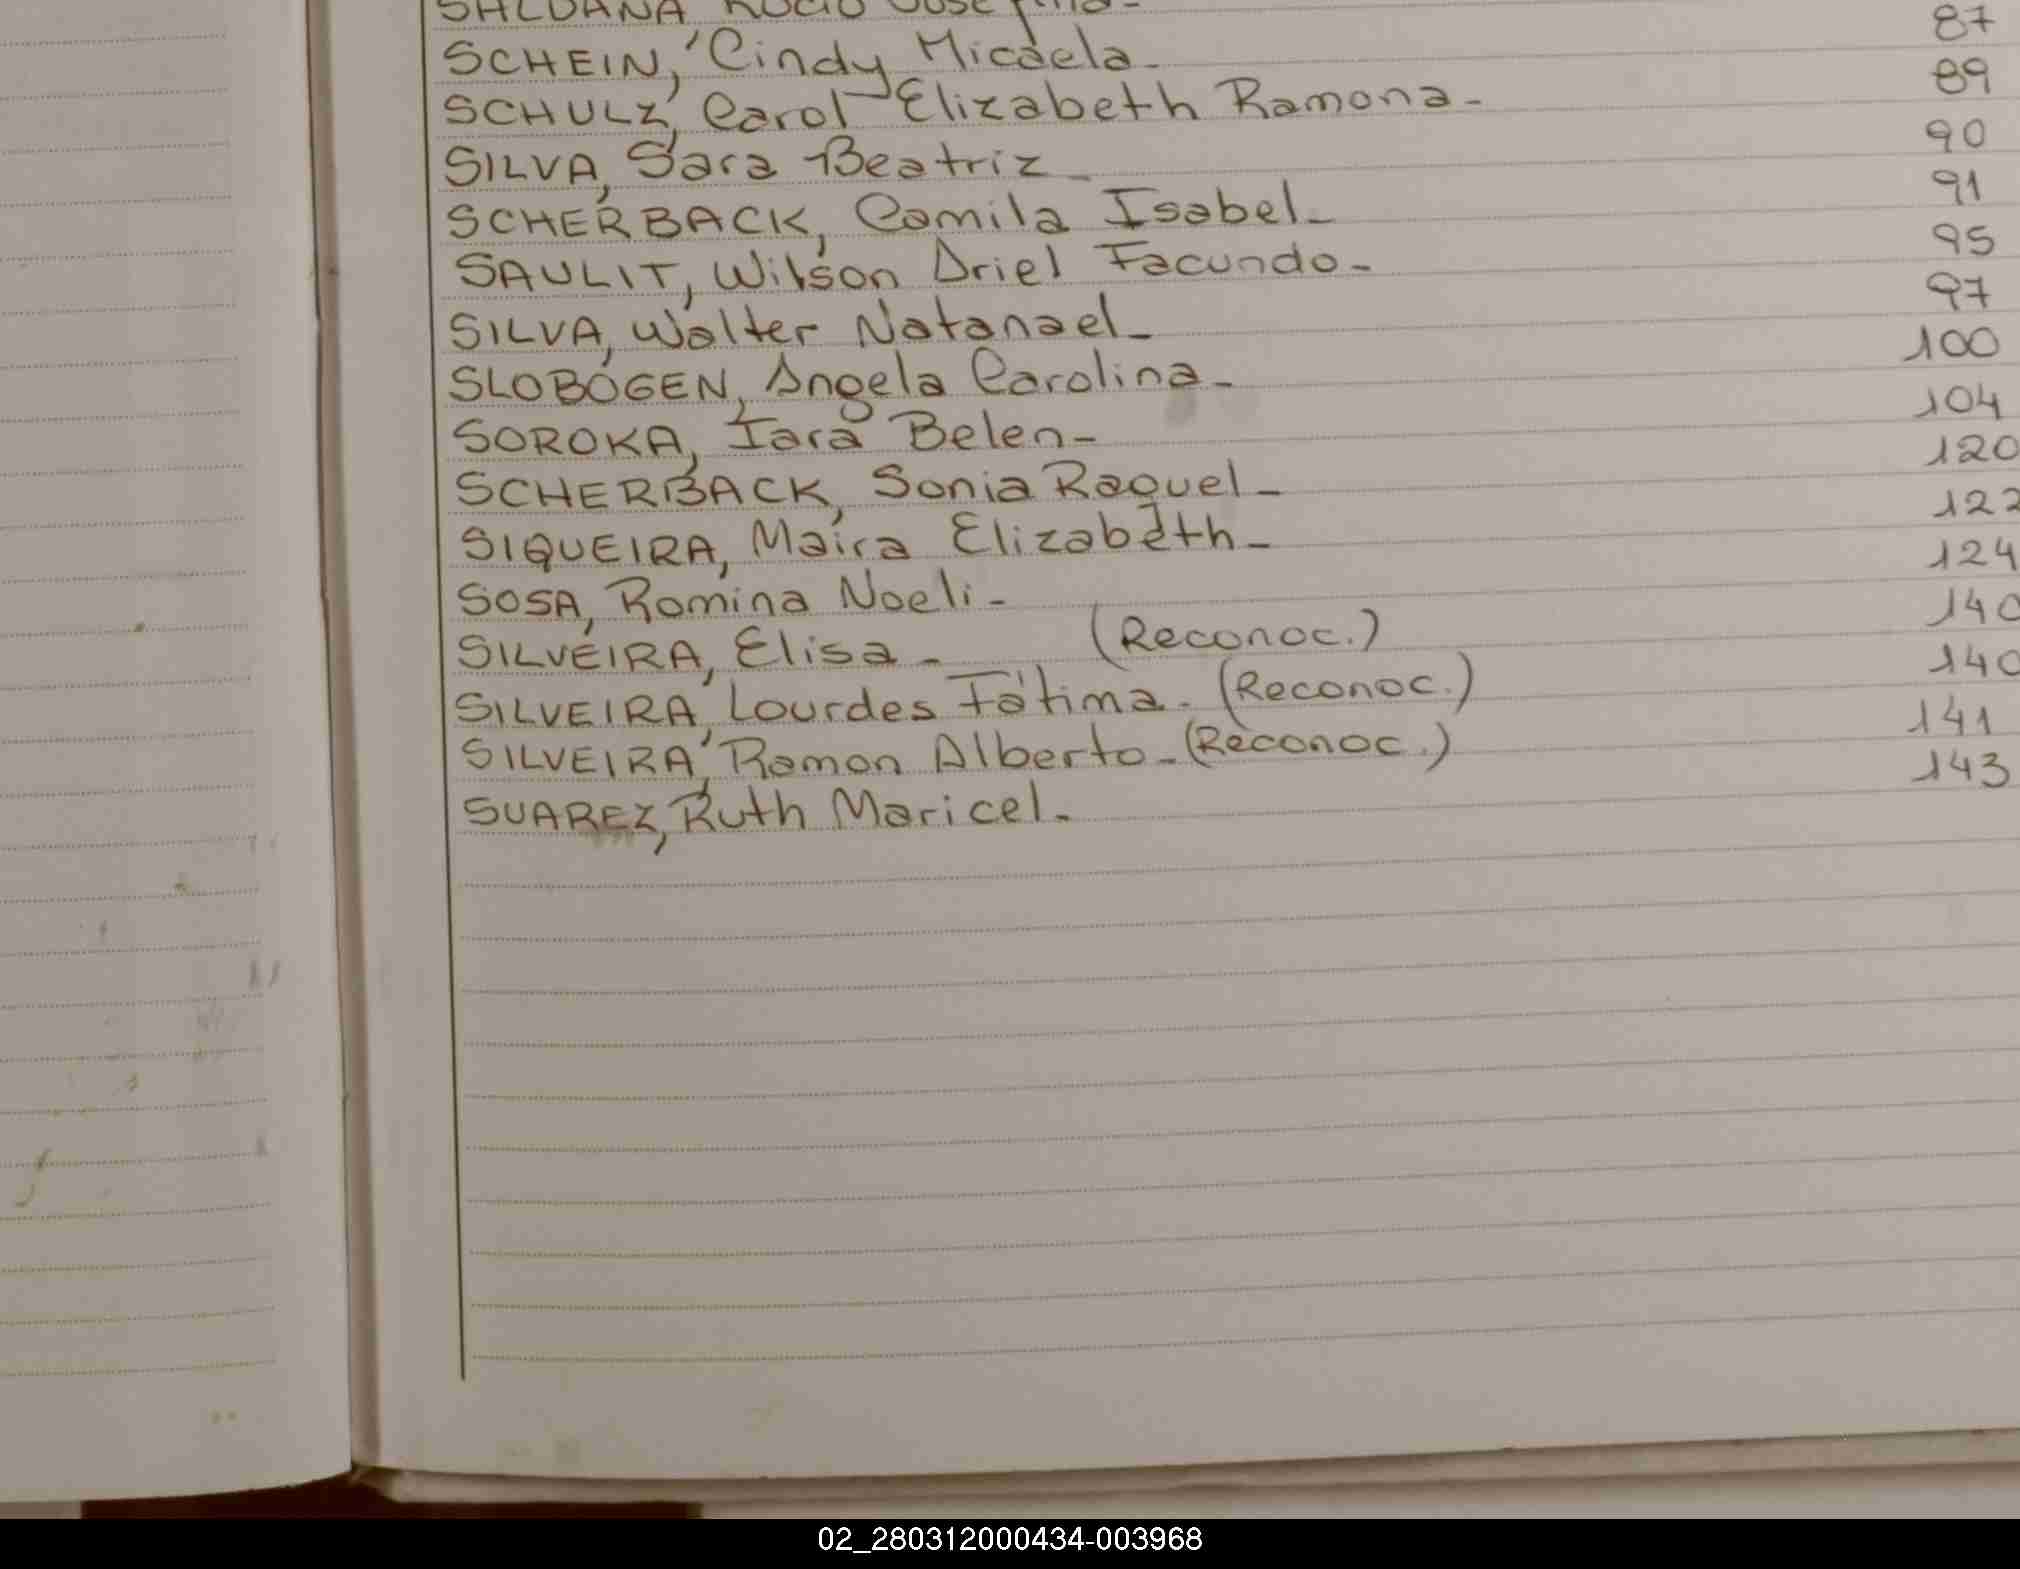 SALDANA Rocio Josefina-
SCHEIN, Cindy Micaela- 87
SCHULZ, Carol Elizabeth Ramona- 89
SILVA, Sara Beatriz- 90
SCHERBACK, Camila Isabel- 91
SAULIT, Wilson Ariel Facundo- 95
SILVA, Walter Natanael- 97
SLOBOGEN, Angela Carolina- 100
SOROKA, Iara Belen- 104
SCHERBACK, Sonia Raquel- 120
SIQUEIRA, Maira Elizabeth- 122
SOSA, Romina Noeli- 124
SILVEIRA, Elisa- (Reconoc.) 140
SILVEIRA, Lourdes Fátima- (Reconoc.) 140
SILVEIRA, Ramon Alberto- (Reconoc.) 141
SUAREZ, Ruth Maricel- 143
02_280312000434-003968